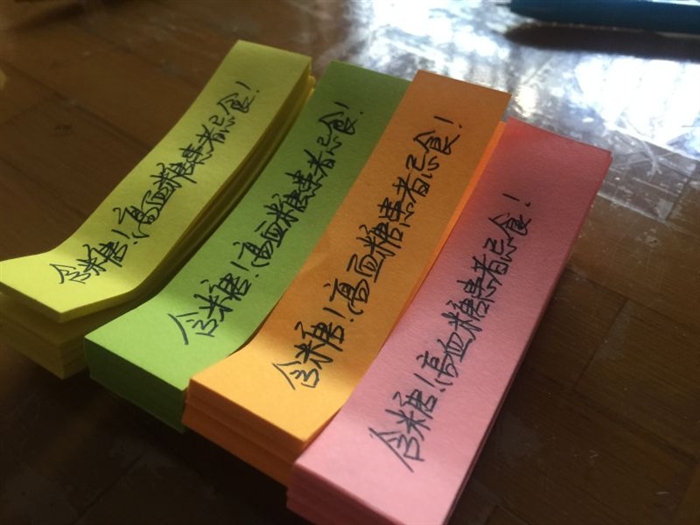 含糖!高血糖患者忌食!
含糖!高血糖患者忌食!
含糖!高血糖患者忌食!
含糖!高血糖患者忌食!